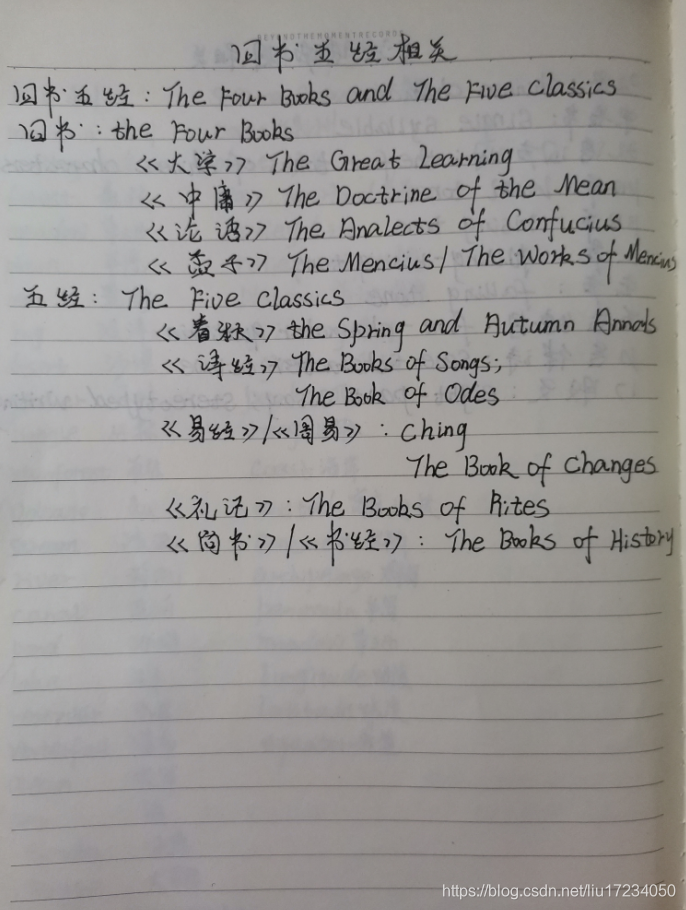 BEYONDTHEMOMENTRECORDS
四书五经相关
四书五经: The Four Books and The Five Classics
四书: the Four Books
《大学》 The Great Learning
《中庸》 The Doctrine of the Mean
《论语》 The Analects of Confucius
《孟子》 The Mencius/ The Works of Mencius
五经: The Five Classics
《春秋》 the Spring and Autumn Annals
《诗经》 The Books of Songs;
The Book of Odes
《易经》/《周易》: Ching
The Book of Changes
《礼记》: The Books of Rites
《尚书》/《书经》: The Books of History
https://blog.csdn.net/liu17234050